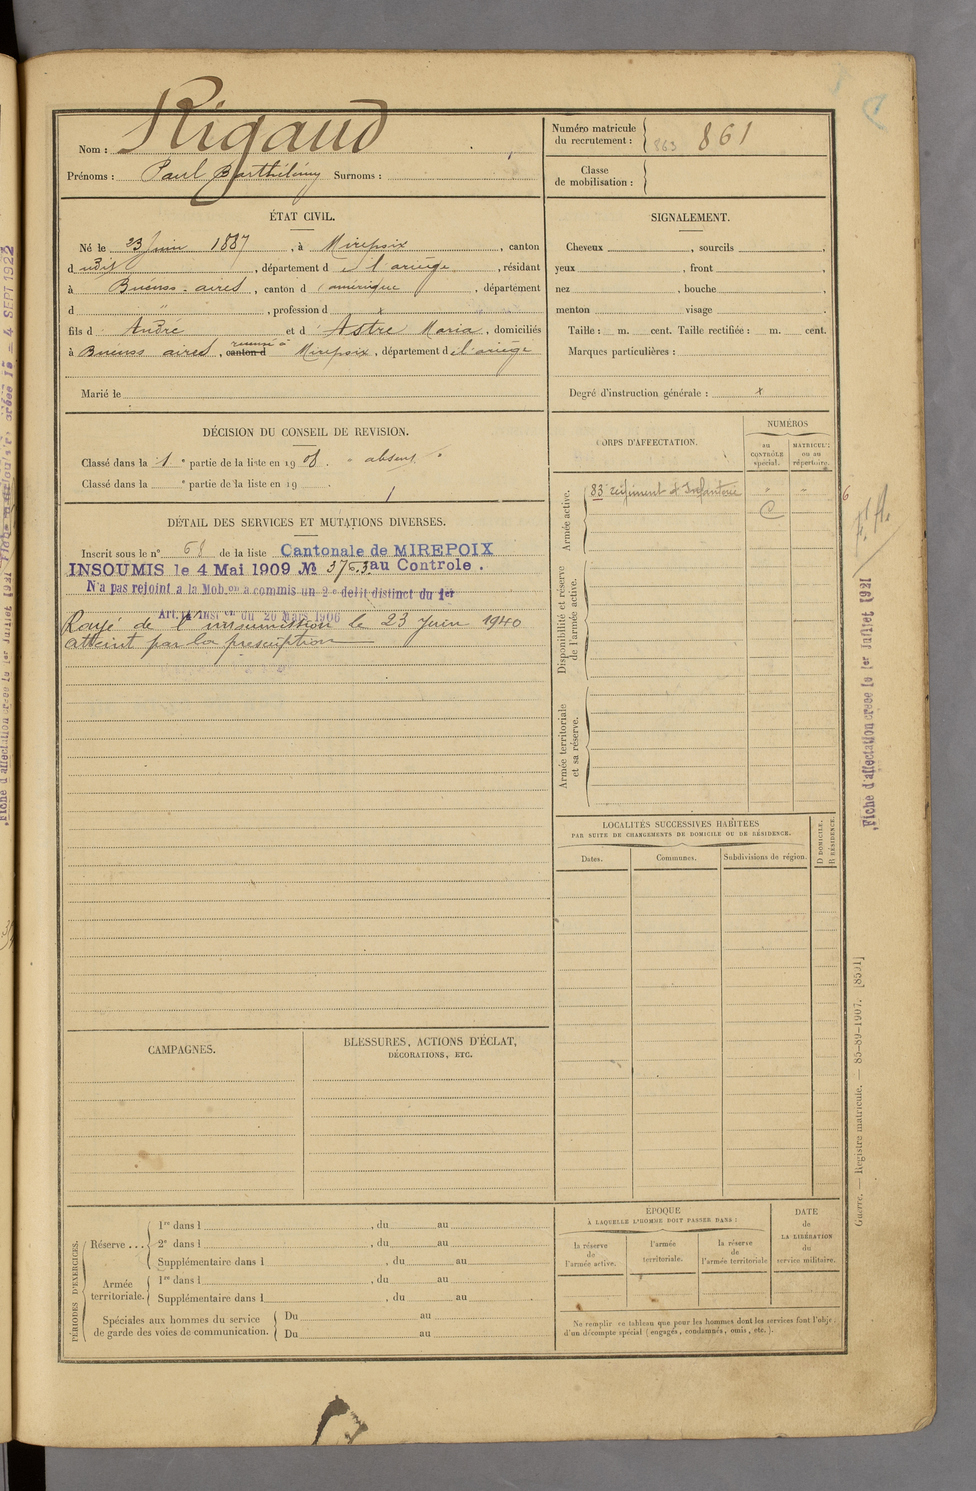 Nom : Rigaud
Prénoms : Paul Barthélémy Surnoms :
Numéro matricule
du recrutement : 863 861
Classe
de mobilisation :
ÉTAT CIVIL.
Né le 23 Juin 1887, à Mirepoix, canton
d udit, département d e l'ariège, résidant
à Buénss-aires, canton d 'amérique, département
d , profession d x
fils d André et d' Astre Maria, domiciliés
à Buénss aires, canton d Mirepoix, département d e l'ariège
Marié le
SIGNALEMENT.
Cheveux , sourcils ,
yeux , front ,
nez , bouche ,
menton visage
Taille : m. cent. Taille rectifiée : m. cent.
Marques particulières :
Degré d'instruction générale : x
DÉCISION DU CONSEIL DE REVISION.
Classé dans la 1 e partie de la liste en 19 08. " absent "
Classé dans la e partie de la liste en 19 .
DÉTAIL DES SERVICES ET MUTATIONS DIVERSES.
Inscrit sous le n° 68 de la liste Cantonale de MIREPOIX
INSOUMIS le 4 Mai 1909 № 3763 au Controle.
N'a pas rejoint a la Mob on a commis un 2e delit distinct du 1er
Art. Inst on du 20 Mars 1906
Rayé de l'insoumission le 23 Juin 1940
atteint par la prescription
CORPS D'AFFECTATION.
NUMÉROS
au
CONTRÔLE
spécial.
MATRICULE
ou au
répertoire.
Armée active.
83e régiment d'Infanterie " "
C
6
Disponibilité et réserve
de l'armée active.
Armée territoriale
et sa réserve.
LOCALITÉS SUCCESSIVES HABITÉES
PAR SUITE DE CHANGEMENTS DE DOMICILE OU DE RÉSIDENCE.
Dates.
Communes.
Subdivisions de région.
D DOMICILE.
R RÉSIDENCE.
CAMPAGNES.
BLESSURES, ACTIONS D'ÉCLAT,
DÉCORATIONS, ETC.
PÉRIODES D'EXERCICES.
Réserve ...
1re dans l , du au
2e dans l , du au
Supplémentaire dans l , du au
Armée
territoriale.
1re dans l , du au
Supplémentaire dans l , du au
Spéciales aux hommes du service
de garde des voies de communication.
Du au
Du au
ÉPOQUE
À LAQUELLE L'HOMME DOIT PASSER DANS :
la réserve
de
l'armée active.
l'armée
territoriale.
la réserve
de
l'armée territoriale
DATE
de
LA LIBÉRATION
du
service militaire.
Ne remplir ce tableau que pour les hommes dont les services font l'objet
d'un décompte spécial (engagés, condamnés, omis, etc.).
Fiche d'affectation créée le 1er Juillet 1921
Guerre. — Registre matricule. — 85-89-1907. [8501]